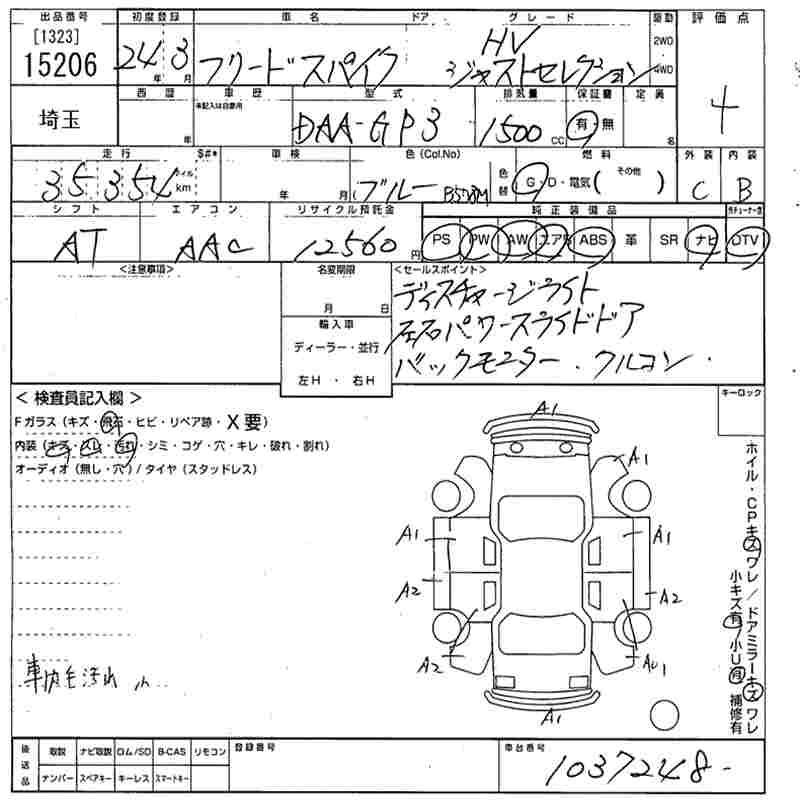 出品番号 初度登録 車名 ドア グレード 駆動 評価点
[1323] HV 2WD
15206 24年 3月 フリードスパイク ジャストセレクション 4WD
西暦 車歴 型式 排気量 保証書 定員 4
埼玉 未記入は自家用 DAA-GP3 1500 CC 有・無
年 名
走行 S#* 車検 色(Col.No) 燃料 外装 内装
35354 マイル km 年 月( ブルー 色替 G・D・電気( その他 ) C B
シフト エアコン リサイクル預託金 純正装備品
AT AAC 12560円 PS PW AW エアB ABS 革 SR ナビ DTV
<注意事項> 名変期限 <セールスポイント>
月 日 ディスチャージライト
輸入車 左右パワースライドドア
ディーラー・並行 バックモニター.クルコン.
左H・右H
<検査員記入欄> キーロック
Fガラス(キズ・飛石・ヒビ・リペア跡・X要)
内装(キズ・スレ・汚れ・シミ・コゲ・穴・キレ・破れ・割れ)
オーディオ(無し・穴)/タイヤ(スタッドレス)
A1
A1
A1 A1
A2 A2
A2 AU1
A1
ホイル・CPキズワレ/ドアミラーキズワレ
小キズ有 小U有 補修有
車内毛汚れ 小
後送品 取説 ナビ取説 ロム/SD B-CAS リモコン 登録番号 車台番号
ナンバー スペアキー キーレス スマートキー 1037248-